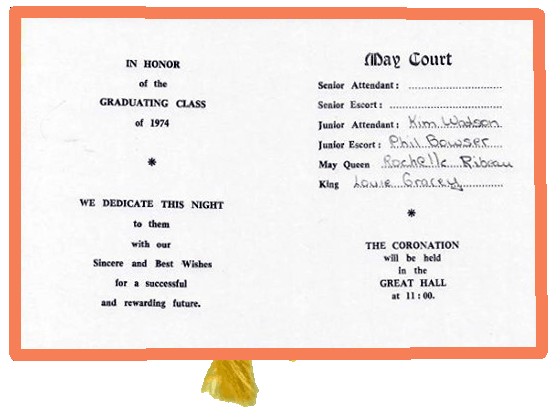 IN HONOR
of the
GRADUATING CLASS
of 1974
*
WE DEDICATE THIS NIGHT
to them
with our
Sincere and Best Wishes
for a successful
and rewarding future.
May Court
Senior Attendant: ................................
Senior Escort: ......................................
Junior Attendant: Kim Wadson
Junior Escort: Phil Bowser
May Queen Rochelle Ribeau
King Louie Gracey
*
THE CORONATION
will be held
in the
GREAT HALL
at 11:00.